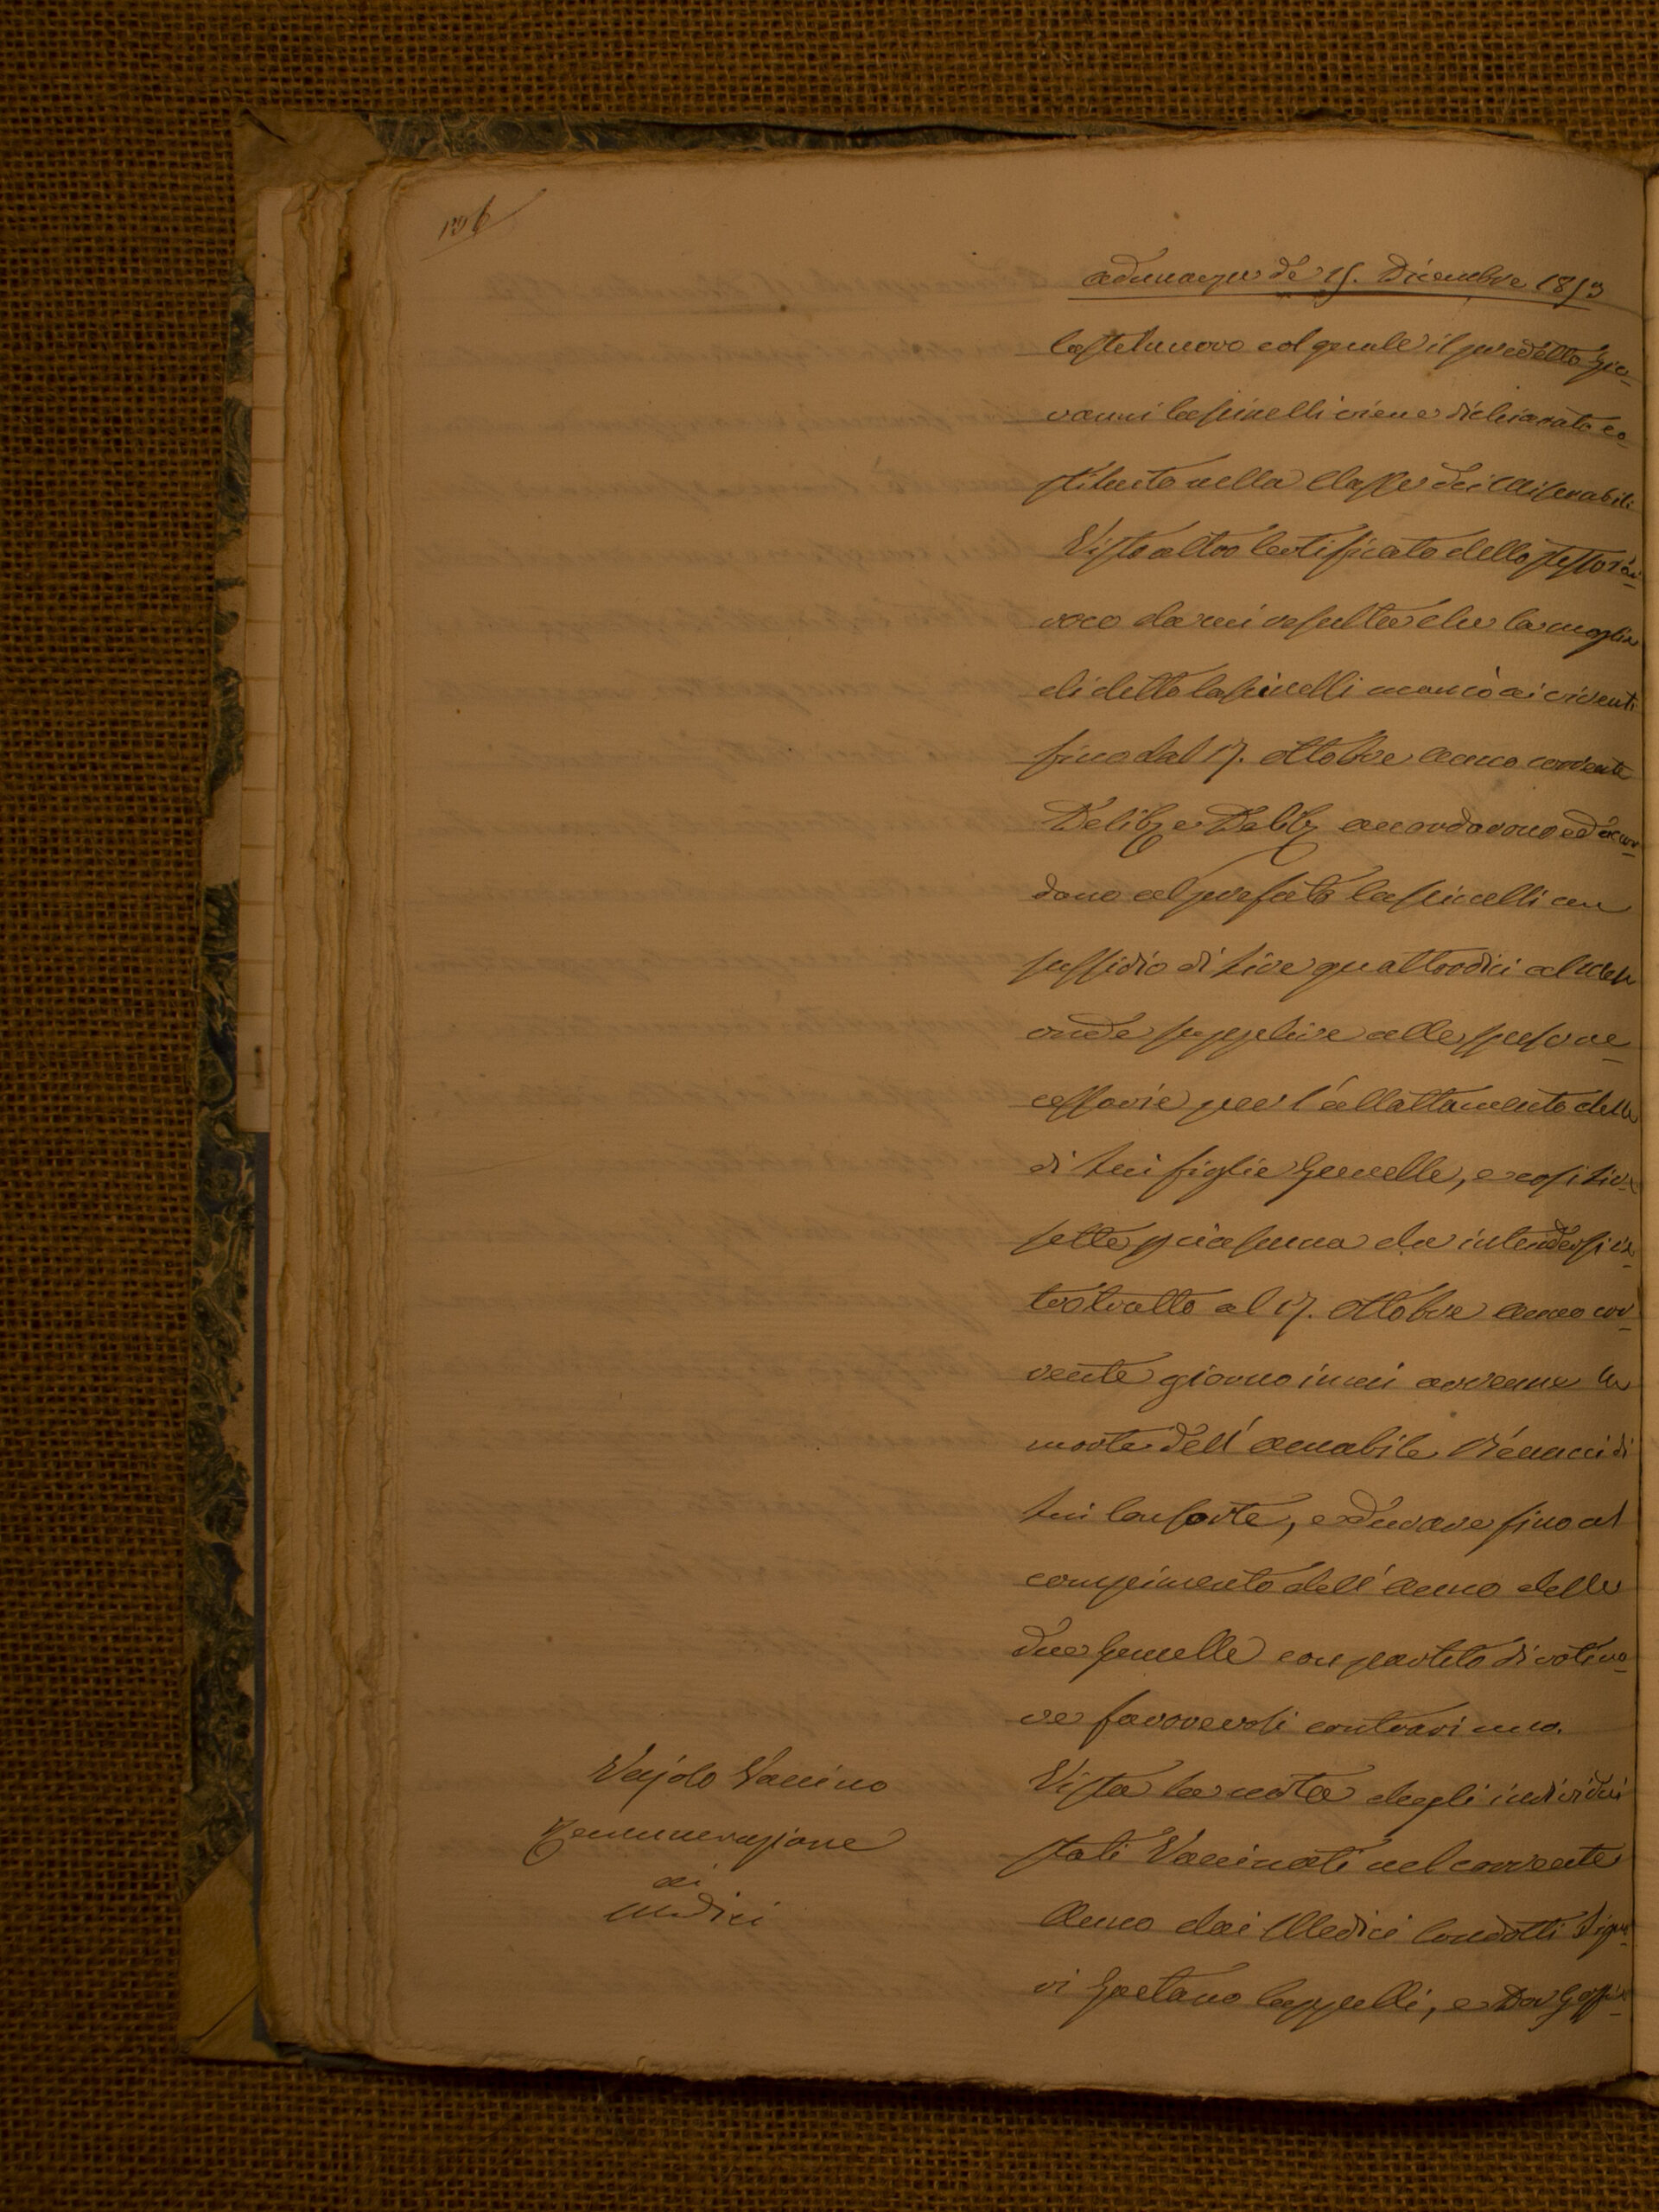 Adunanza de 15. Dicembre 1853
Castelnuovo col quale il predetto Gio-
vanni Caspinelli viene dichiarato co-
stituito nella Classe dei Miserabili
Visto altro Certificato dello stesso Par-
roco da cui resulta che la moglie
di detto Caspinelli mancò ai viventi
fino dal 17. Ottobre Anno corrente
Delibz e Delibz accordarono ed accor-
dano al prefato Caspinelli un
sussidio di Lire quattordici al Mese
onde supplire alle spese ne-
cessarie per l'allattamento delle
di Lui figlie Gemelle, e così Lire
sette ciascuna da intendersi re-
trotratto al 17. Ottobre Anno cor-
rente giorno in cui avvenne la
morte dell'Annabile Vénucci di
Lui Consorte, e durare fino al
compimento dell'Anno delle
due Gemelle con partito di voti no-
ve favorevoli contrari uno.
Vajolo Vaccino
Remunerazione
ai
Medici
Vista la nota degli individui
stati Vaccinati nel corrente
Anno dai Medici Condotti Signo-
ri Gaetano Cappelli, e